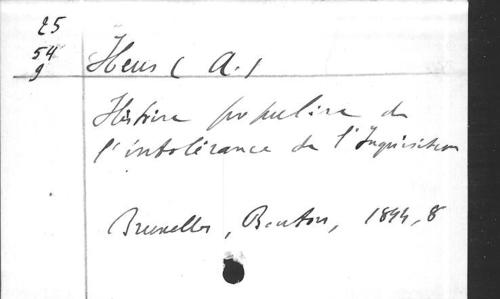 25
54
9
Heus (A.)
Histoire populaire de
l'intolérance de l'Inquisition
Bruxelles, Bouton, 1894, 8